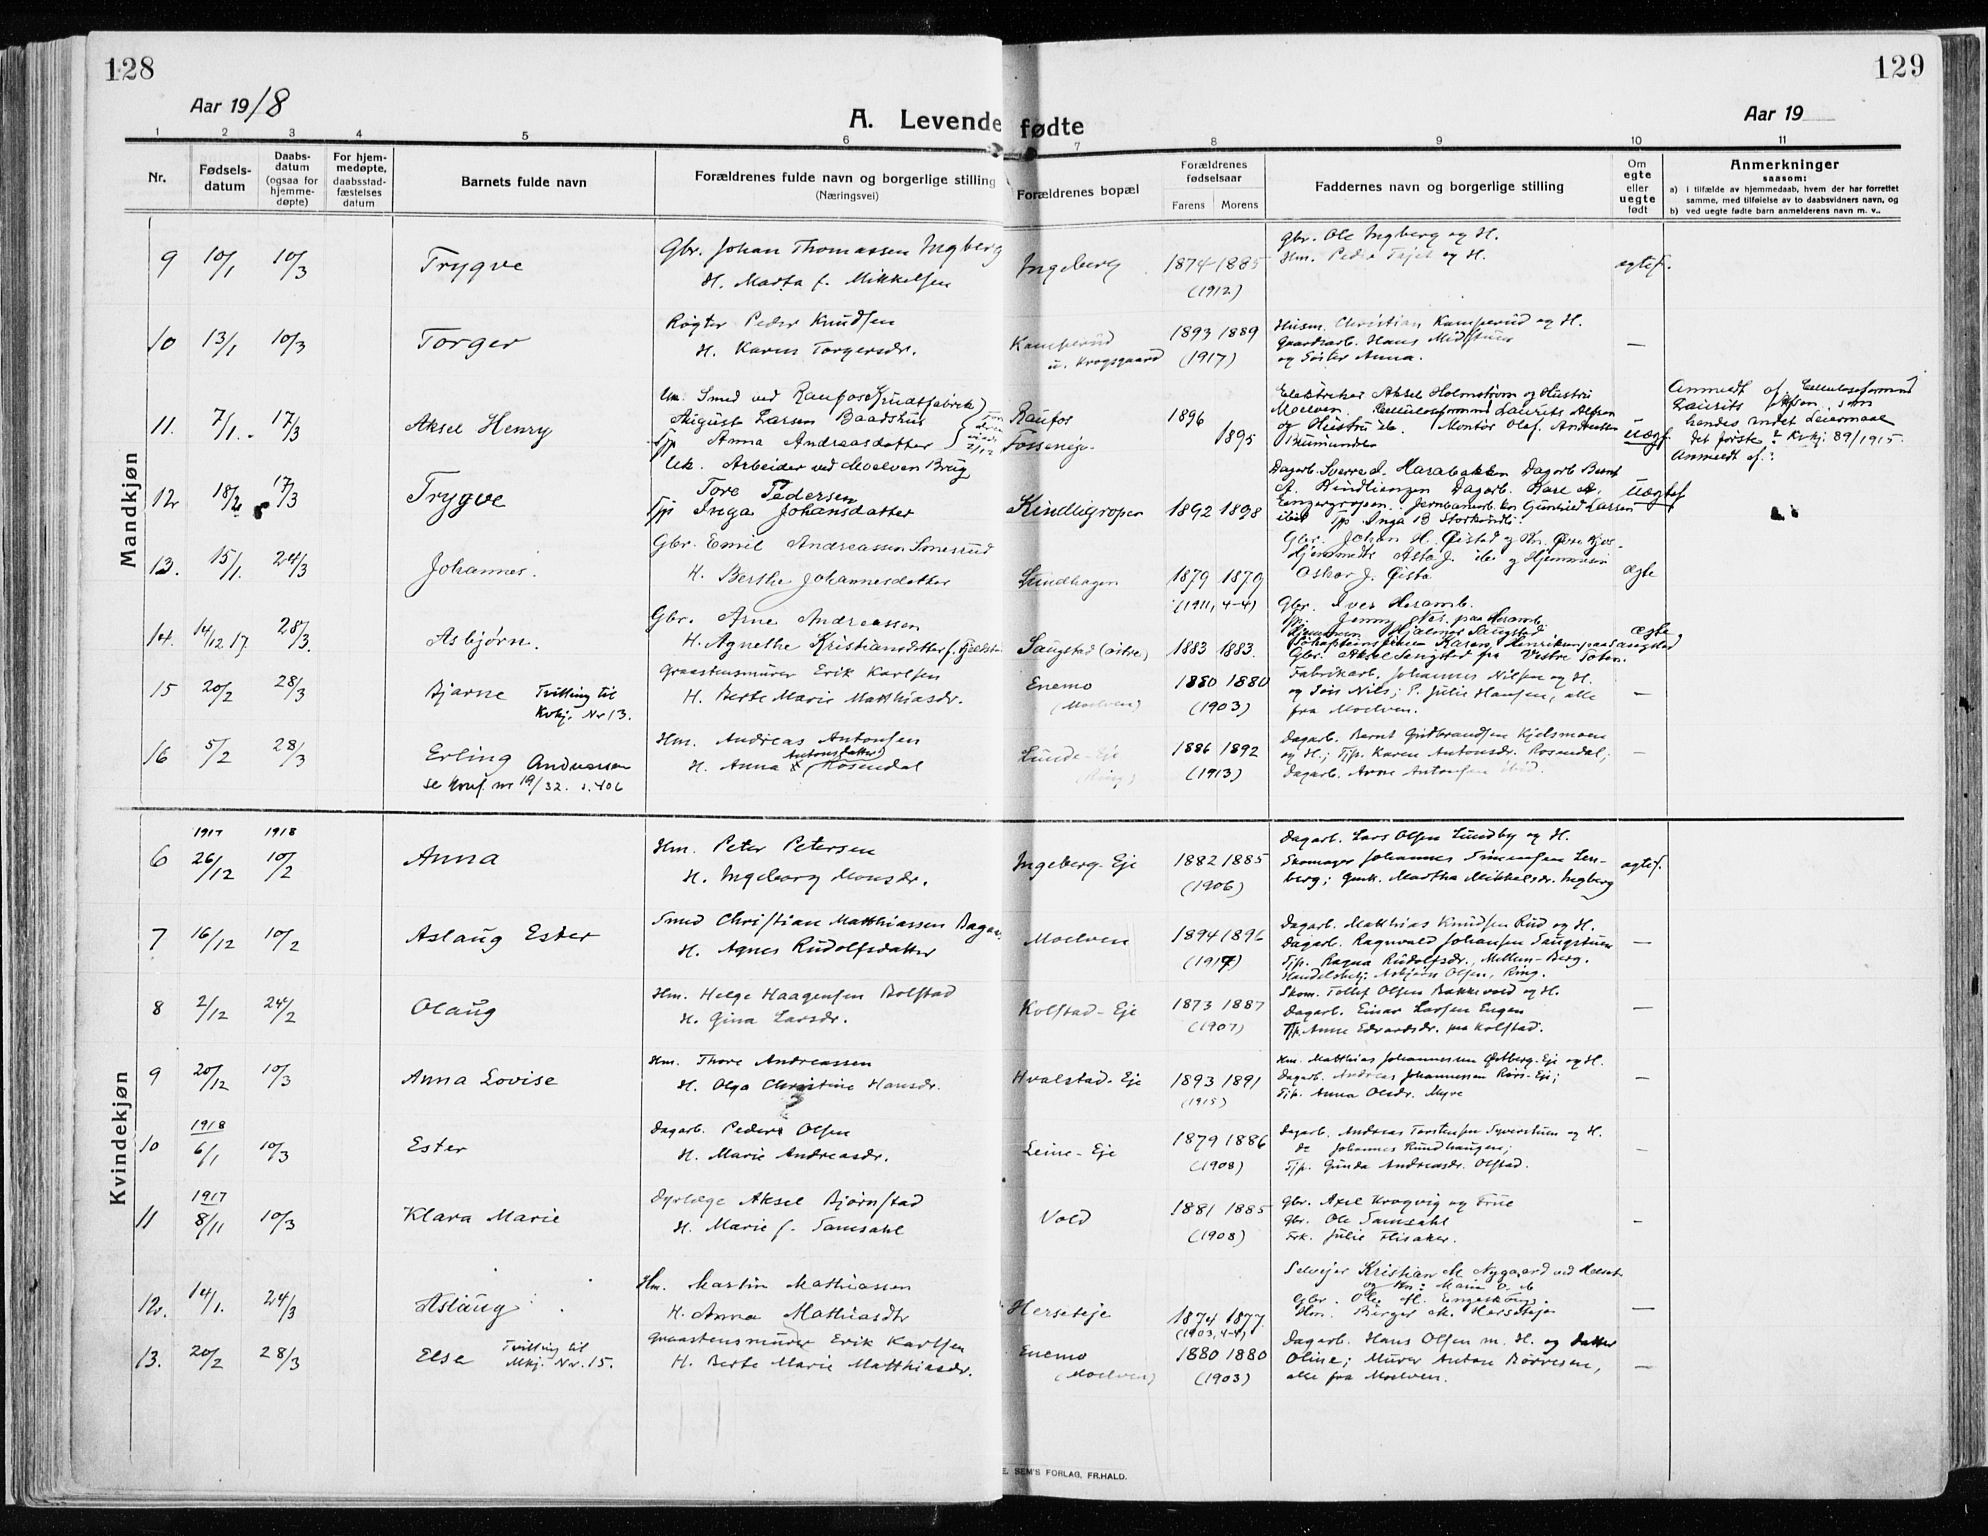 128
129
Aar 1918
A. Levende fødte
Aar 19
1 2 3 4 5 6 7 8 9 10 11
Nr.
Fødsels-
datum
Daabs-
datum
(ogsaa for
hjemme-
døpte)
For hjem-
medøpte,
daabsstad-
fæstelses
datum
Barnets fulde navn
Forældrenes fulde navn og borgerlige stilling
(Næringsvei)
Forældrenes bopæl
Forældrenes
fødselsaar
Farens Morens
Faddernes navn og borgerlige stilling
Om
egte
eller
uegte
født
Anmerkninger
saasom:
a) i tilfælde av hjemmedaab, hvem der har forrettet
samme, med tilføielse av to daabsvidners navn, og
b) ved uegte fødte barn anmelderens navn m. v..
Mandkjøn
9 10/1 10/3 Trygve
Gbr. Johan Thomassen Ingberg
H. Marta f. Mikkelsen
Ingeberg 1874 1885
(1912)
Gbr. Ole Ingberg og H.
Hm. Peder Fajet og H.
egtef.
10 13/1 10/3 Torger
Røgter Peder Knudsen
H. Karen Torgersdr.
Kamperud
u. Krogsgaard
1893 1889
(1917)
Husm. Christian Kamperud og H.
Gaardsarb. Hans Midtstuen
og Søster Anna.
—
11. 7/1. 17/3 Aksel Henry
Uk. Smed ved Raufos Krudtfabrik
August Larsen Baadshus
Tjp Anna Andreasdatter
Raufos
Fosseneje
1896
1895
Elektriker Aksel Holmstrøm og Hustru
Moelven. Celluloseformand Laurits Alfsen
og Hustru ib. Montør Olaf Andresen
Brumunddal
Uegt.
Anmeldt af Celluloseformand
Laurits Alfsen, som
hendes andet Leiermaal
det første ? Kvkj. 89/1915.
Anmeldt af:?
12 18/2 17/3 Trygve
Uk. Arbeider ved Moelven Brug
Tore Pedersen
Tjp Inga Johansdatter
Kindligropen 1892 1898
Dagarb. Sverre J. Harabakken Dagarb Bernt
A. Kindliengen Dagarb. Kare A.
Uegtef
13. 15/1. 24/3 Johannes.
Gbr. Emil Andreassen Smerud
H. Berthe Johannesdatter
Lundhagen 1879 1879
(1911, 4-4)
Gbr. Johan H. Øistad
Oskar J. Øista
ægte
14. 14/12 17. 28/3. Asbjørn.
Gbr. Arne Andreassen
H. Agnethe Kristiansdatter f.
Saugstad (østre) 1883 1883.
Gbr. Iver Heramb.
Gbr. Aksel Saugstad fra Vestre Toten.
ægte
15 20/2 28/3 Bjarne Tvilling til
Kvkj. Nr 13.
Graastensmurer Erik Karlsen
H. Berte Marie Matthiasdr.
Enemo
(Moelven)
1880 1880
(1903)
Fabrikarb. Johannes Nilsen og H.
og Søn Nils; P. Julie Hansen, alle
fra Moelven.
—
16 5/2 28/3 Erling Andreassen
se konf. nr 19/32. s. 406
Hm. Andreas Antonsen
H. Anna Antonsdatter (Rosendal
Lunde-Eje
(Ring)
1886 1892
(1913)
Dagarb. Bernt Gudbrandsen Kjelsmoen
og H.; Tjp. Karen Antonsdr. Rosendal;
Dagarb. Arne Antonsen ibid.
—
Kvindekjøn
1917 1918
6 26/12 10/2 Anna
Hm. Peter Petersen
H. Ingeborg Monsdr.
Ingeberg-Eje 1882 1885
(1906)
Dagarb. Lars Olsen Lundby og H.
Skomager Johannes Simensen Len-
berg; Gmk. Martha Mikkelsdr. Ingberg
egtef.
7 16/12 10/2 Aslaug Ester
Smed Christian Matthiassen Bagar
H. Agnes Rudolfsdatter
Moelven 1894 1896
(1917)
Dagarb. Matthias Knudsen Rud og H.
Dagarb. Ragnvald Johansen Saugstuen
Tjp. Ragna Rudolfsdr., Mellem-Berg.
Handelsbetj. Asbjørn Olsen, Ring.
—
8 2/12 24/2 Olaug
Hm. Helge Haagensen Bolstad
H. Gina Larsdr.
Kolstad-Eje 1873 1887
(1907)
Skom. Tollef Olsen Bakkevold og H.
Dagarb. Einar Larsen Engen
Tjp. Anne Edvardsdr. paa Kolstad.
—
9 20/12 10/3 Anna Lovise
Hm. Thore Andreassen
H. Olga Christine Hansdr.
Hvalstad-Eje 1893 1891
(1915)
Hm. Matthias Johannessen Østberg-Eje og H.
Dagarb. Andreas Johannessen Røis-Eje;
Tjp. Anna Olsdr. Myre
—
1918
10 6/1 10/3 Ester
Dagarb. Peder Olsen
H. Marie Andreasdr.
Leine-Eje 1879 1886
(1908)
Dagarb. Andreas Torstensen Syverstuen og H.
do Johannes Rundhaugen;
Tjp. Gunda Andreasdr. Olstad.
—
1917
11 8/11 10/3 Klara Marie
Dyrlæge Aksel Bjørnstad
H. Marie f. Samsahl
Vold 1881 1885
(1908)
Gbr. Axel Krogvig og Frue
Gbr. Ole Samsahl
Frk. Julie Flisaker.
—
12. 14/1. 24/3 Aslaug
Hm. Martin Mathiassen
H. Anna Mathiasdtr
Herseteje 1874 1877
(1903, 4-4)
Selvejer Kristian M. Nygaard ved Herset
Gbr. Ole H. Engeskaug.
Hm. Birger M. Herseteje
—
13. 20/2 28/3 Else Tvilling til
Mkj. Nr. 15.
Graastensmurer Erik Karlsen
H. Berte Marie Matthiasdr.
Enemo
(Moelven)
1880 1880
(1903)
Dagarb. Hans Olsen m. H. og datter
Oline; Murer Anton Børresen,
alle fra Moelven.
—
E. SEM'S FORLAG, FR.HALD.